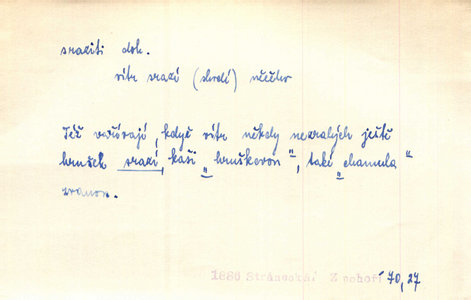 sraziti dok.
vítr srazí (shodí) něčeho
Též vařívají, když vítr někdy nezralých ještě
hrušek srazí, kaši „hruškovon", také „chamula"
zvanou.
1886 Stránecká: Z pohoří 70,27